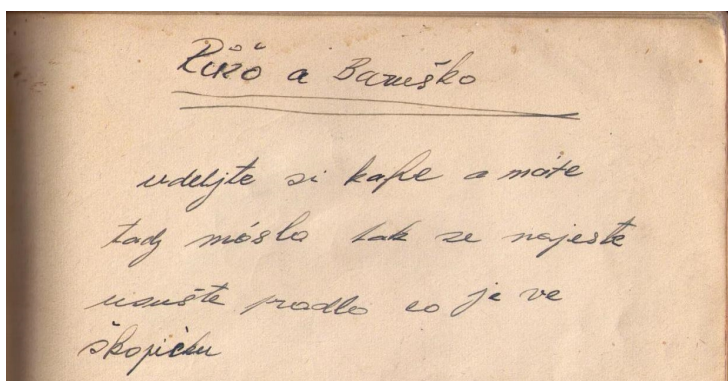 Růžo a Baruško
udelejte si kafe a máte
tady másla tak se najeste
ususte pradlo co je ve
škopíčku